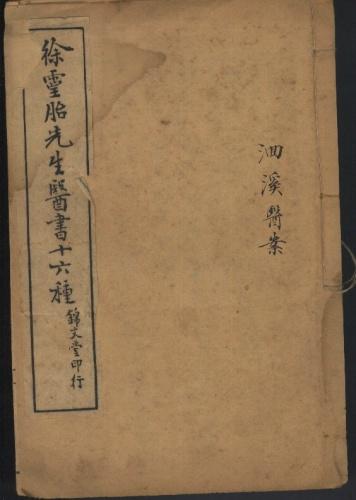 徐靈胎先生醫書十六種
錦文堂印行
洄溪醫案